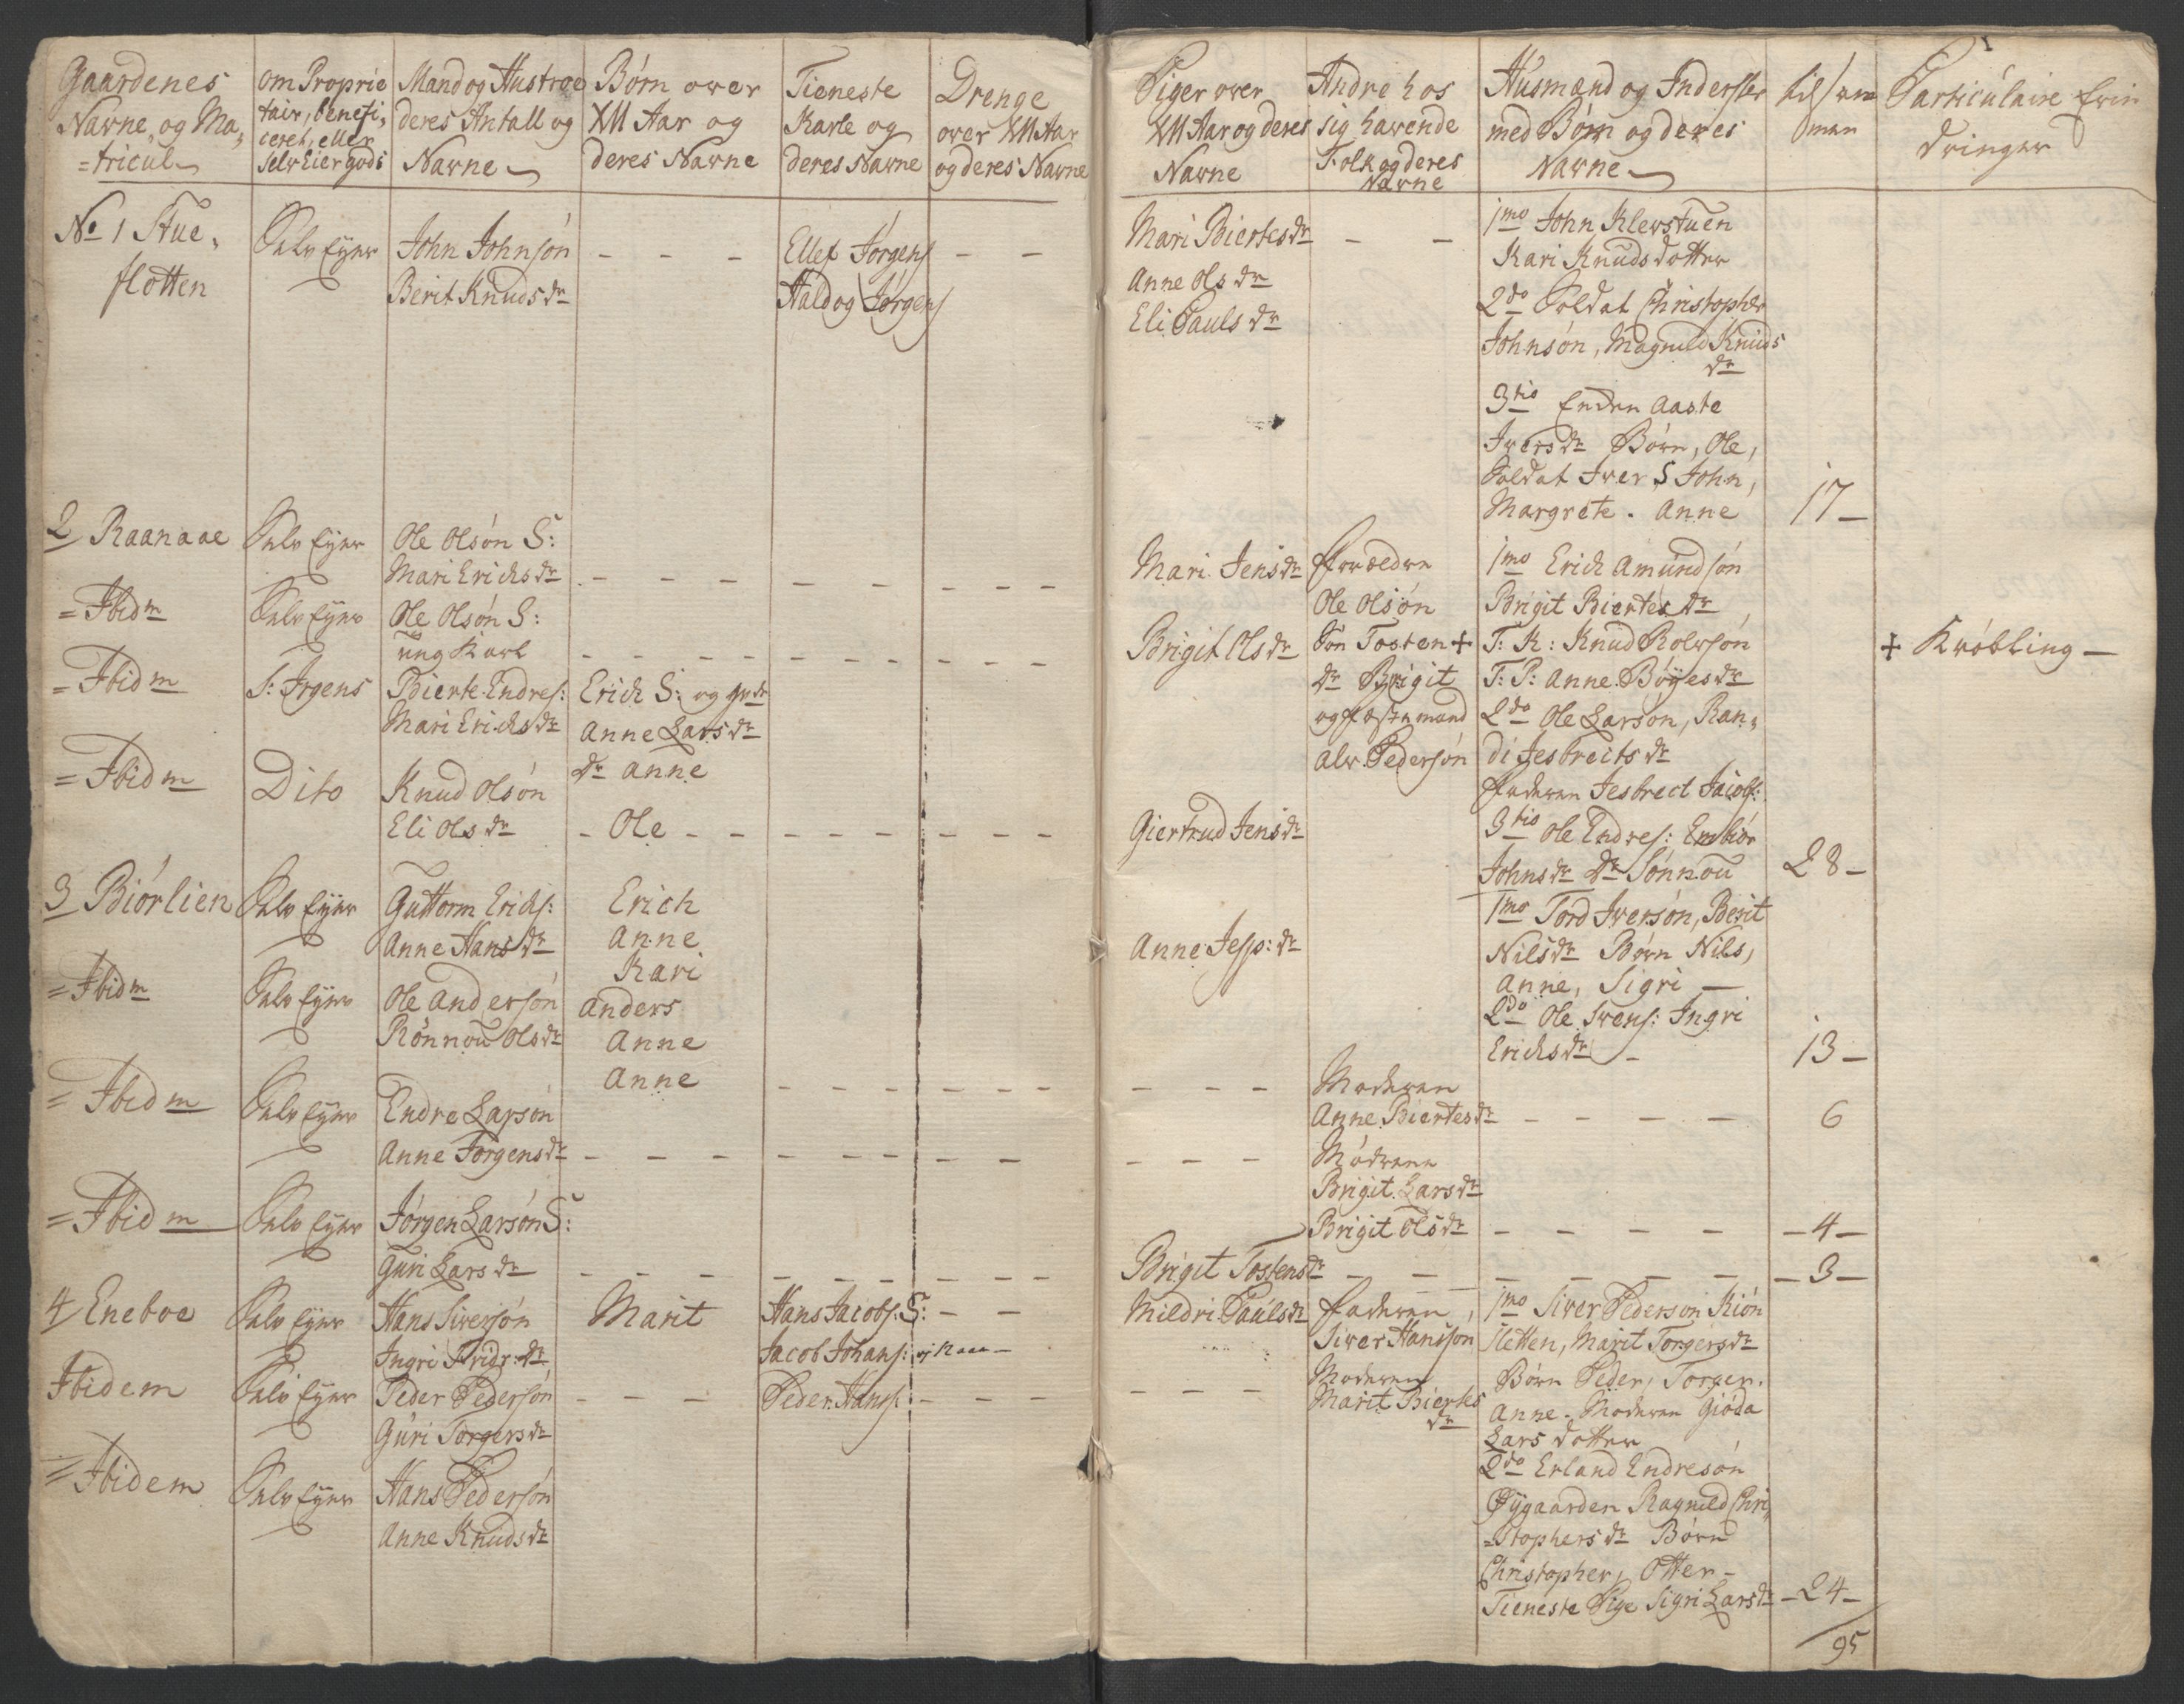 Gaardenes
Navne og Ma-
=tricul
om Proprie
tair, benefi-
ceret, eller
Selv Eier gods
Mand og Hustroe
deres Antall og
Navne
Børn over
XII Aar og
deres Navne
Tieneste
Karle og
deres Navne
Drenge
over XII Aar
og deres Navne
No 1 Stue-
flotten
Selv Eyer
John Johnsón
Berit Knuds dr
- - -
Ellef Jørgens
Haldog Jørgens
- -
2 Raanaae
Selv Eyer
Ole Olsón S:
Mari Erichs dr
- - - - - - - -
= Ibidm
Selv Eyer
Ole Olsón S:
ung Karl
- - - - - - - - -
= Ibidm
S: Jrgens
Bierte Endres:
Mari Erichs dr
Erich S: og
Anne Lars dr
dr Anne
= Ibidm
Dito
Knud Olsón
Eli Ols dr
- Ole - - - - - - - -
3 Biórlien
Selv Eyer
Guttorm Erichs:
Anne Hans dr
Erich
Anne
Kari
= Ibidm
Selv Eyer
Ole Andersón
Rönnou Ols dr
Anders
Anne
Anne
- - - - - - -
= Ibidm
Selv Eyer
Endre Larsón
Anne Jørgens dr
- - - - - - - - -
= Ibidm
Selv Eyer
Jórgen Larsón S:
Guri Lars dr
- - - - - - - - -
4 Eneboe
Selv Eyer
Hans Siversón
Ingri dr
Marit
Hans Jacobs: S:
Jacob Johans:
- -
Ibidem
Selv Eyer
Peder Pedersón
Guri Torgers dr
- -
Peder Hans:
- - -
= Ibidem
Selv Eyer
Hans Pedersón
Anne Knuds dr
Piger over
XII Aar og deres
Navne
Andre hos
sig havende
Folk og deres
Navne
Husmænd og Inderster
med Børn og deres
Navne
tilsam
men
Particulaire Erin
dringer
Mari Biertes dr
Anne Ols dr
Eli Pauls dr
- -
1mo John Klevstuen
Kari Knuds dotter
2do Soldat Christopher
Johnsón, Magnild Knuds
dr
3tio Enken Aaste
Ivers dr Børn, Ole,
Soldat Iver S John,
Margrete. Anne
17 -
Mari Jens dr
Forældre
Ole Olsón
1mo Erich Amundsón
Brigit Biertes dr
Brigit Ols dr
Sön Tosten +
dr Brigit
og Fæstemand
Alv Pedersón
T: K: Knud Rolvsón
T: P: Anne Böyes dr
2do Ole Larsón, Ran-
di Jesbreits dr
Faderen Jesbrect Jacobs:
+ Króbling -
Giertrud Jens dr
3tio Ole Endres: Embiór
Johns dr dr Sönnou
28 -
Anne Jesp: dr
1mo Tord Iversón, Berit
Nils dr Børn Nils,
Anne, Sigri -
2do Ole Ivens: Ingri
Erichs dr -
13 -
- - -
Moderen
Anne Biertes dr
- - - -
6
- - -
Moderen
Brigit Lars dr
Brigit Ols dr
- - - -
- 4 -
Brigit Tostens dr
- - - - - -
- 3 -
Mildri Pauls dr
Faderen
Siver Hansson
1mo Siver Pederson Kión
sletten, Marit Torgers dr
- - -
Moderen
Marit Biertes
dr
Børn Peder, Torger.
Anne. Moderen Gióda
Lars dotter
2do Erland Endresón
Øygaarden Ragnild Chri-
=stophers dr Børn
Christopher, Otter -
Tieneste Pige Sigri Lars dr
- 24 -
95